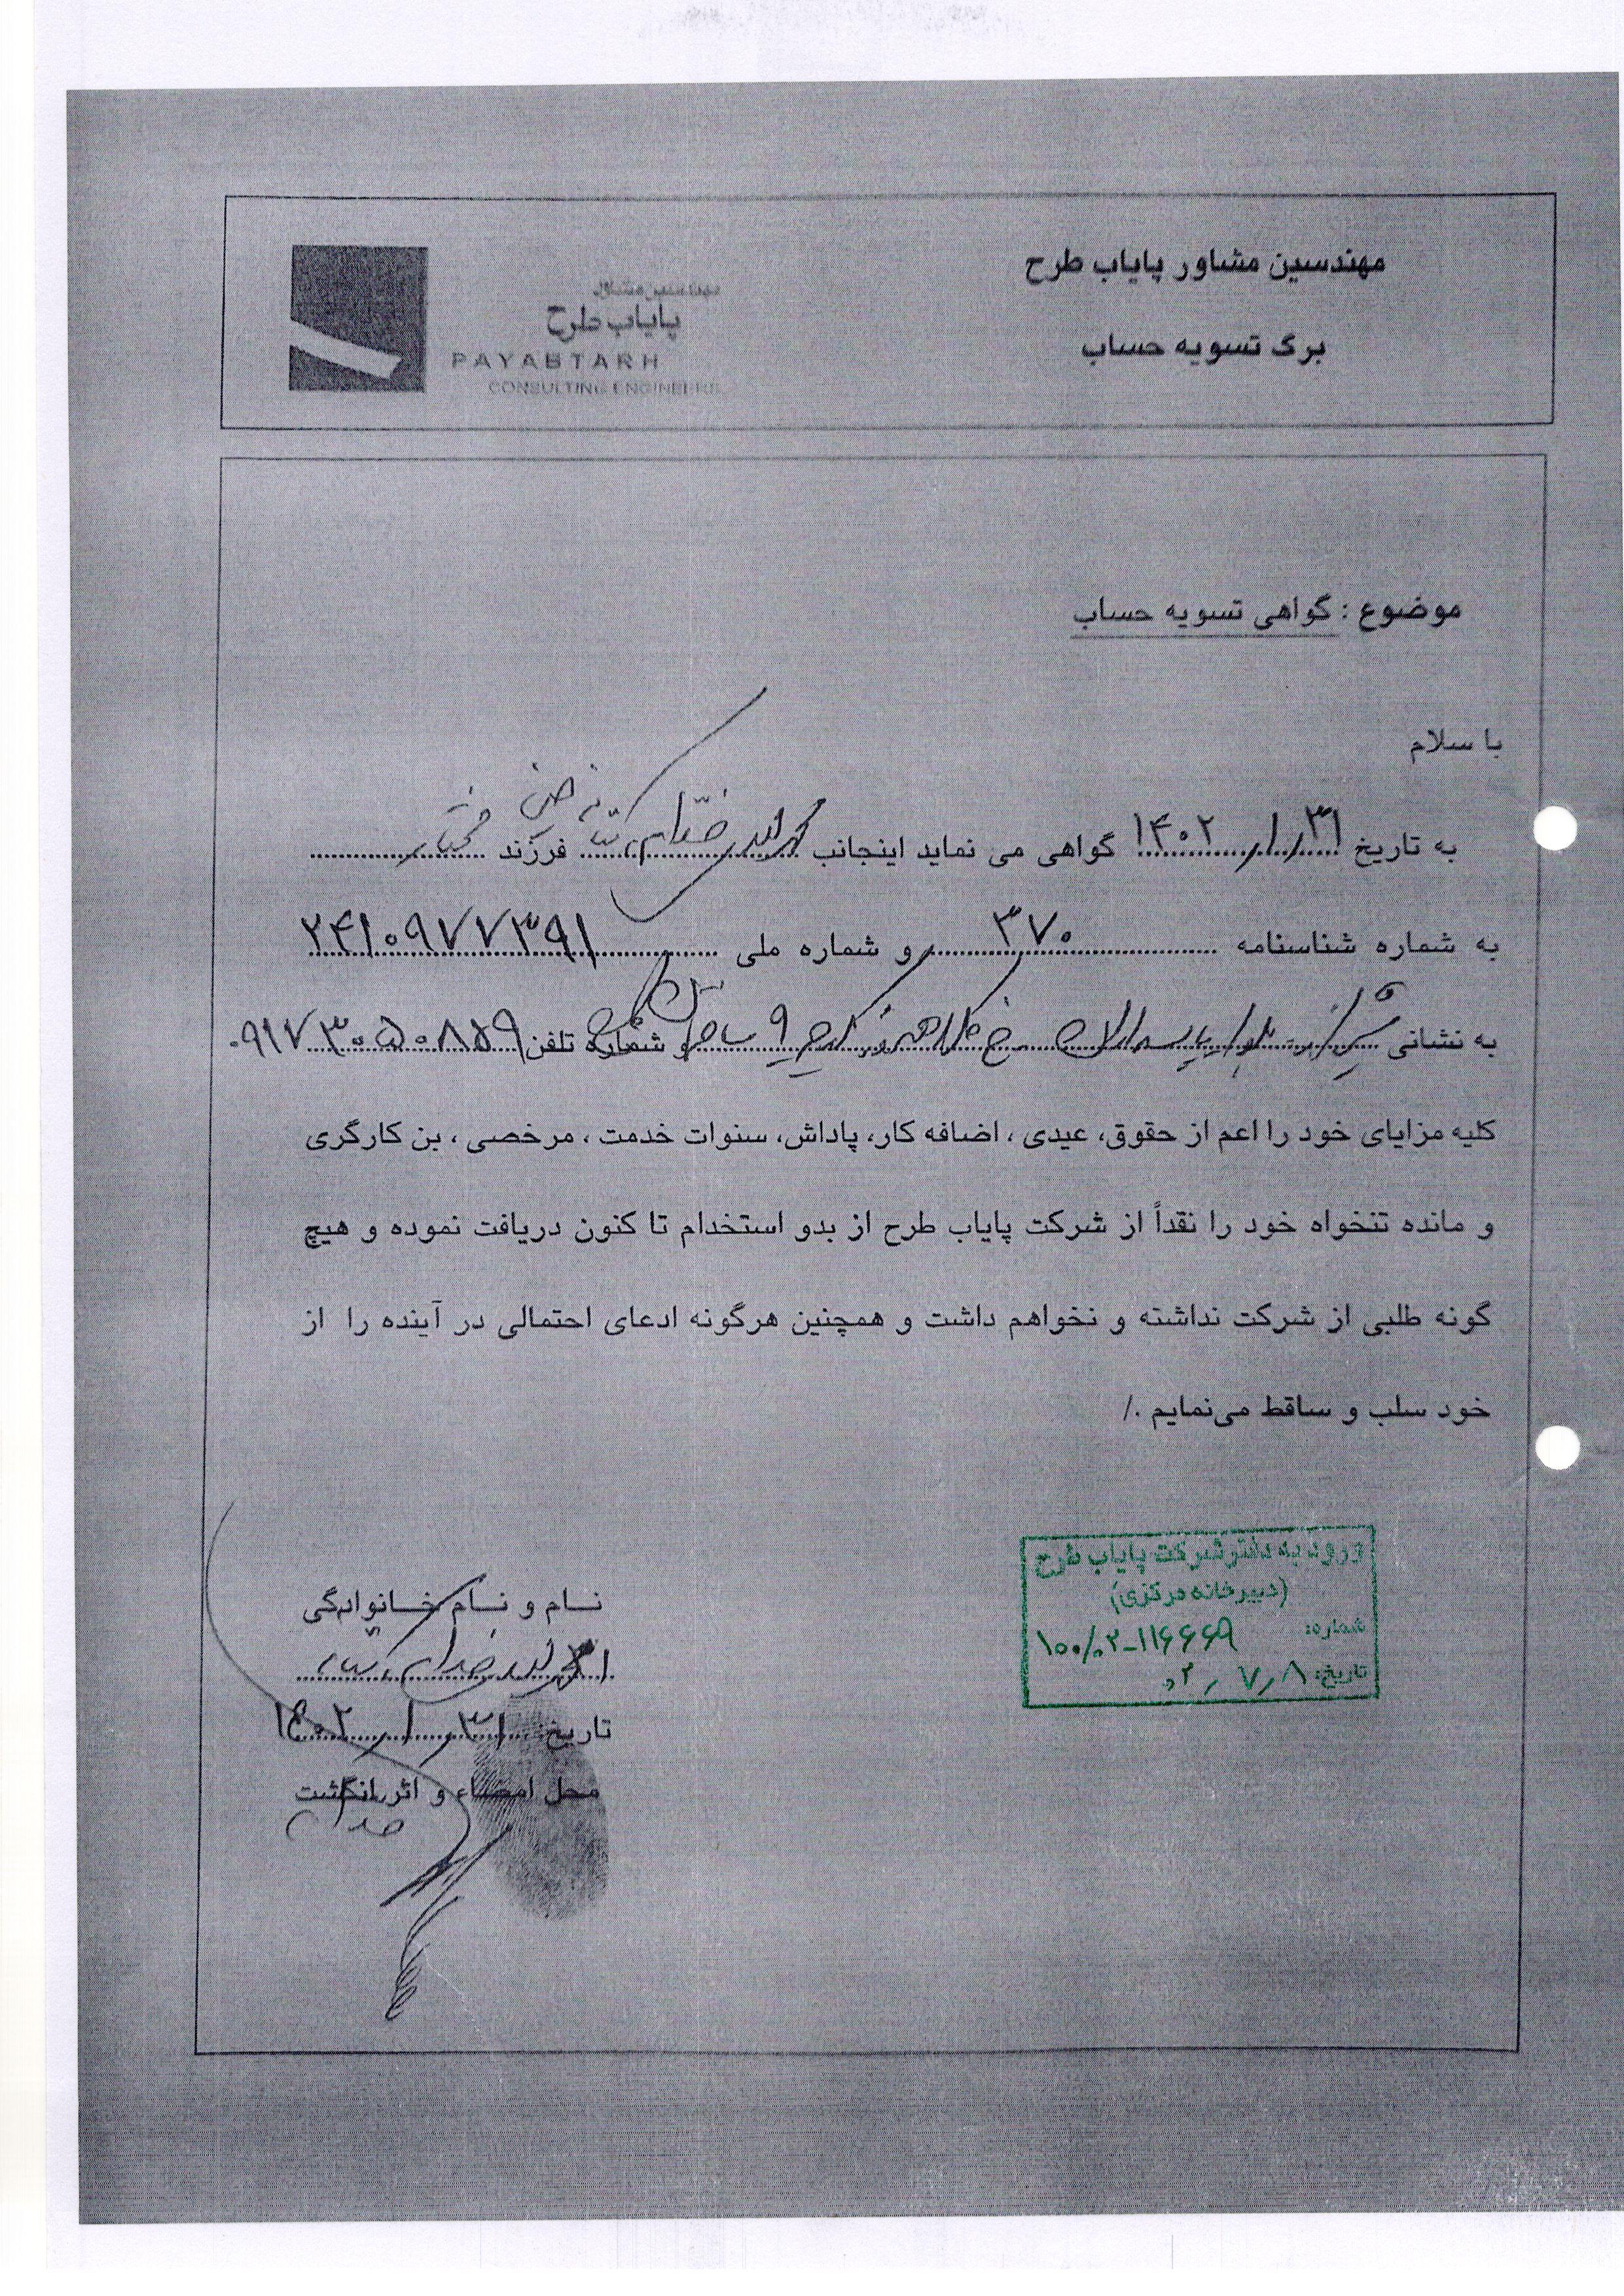 مهندسین مشاور پایاب طرح
برگ تسویه حساب
مهندسین مشاور
پایاب طرح
PAYABTARH
CONSULTING ENGINEERS
موضوع : گواهی تسویه حساب
با سلام
به تاریخ ۱۴۰۲/۱/۳۱ گواهی می نماید اینجانب فرزند مختار
به شماره شناسنامه ۳۷۰ و شماره ملی ۲۴۱۰۹۷۷۳۹۱
به نشانی شیراز بلوار پاسداران و شماره تلفن ۰۹۱۷۳۰۵۰۸۵۹
کلیه مزایای خود را اعم از حقوق، عیدی ، اضافه کار، پاداش، سنوات خدمت ، مرخصی ، بن کارگری
و مانده تنخواه خود را نقداً از شرکت پایاب طرح از بدو استخدام تا کنون دریافت نموده و هیچ
گونه طلبی از شرکت نداشته و نخواهم داشت و همچنین هرگونه ادعای احتمالی در آینده را از
خود سلب و ساقط می‌نمایم ./
ورود به دفتر شرکت پایاب طرح
(دبیرخانه مرکزی)
شماره: ۱۰۰/۰۲-۱۱۶۶۶۹
تاریخ: ۰۲/۷/۸
نام و نام خانوادگی
تاریخ: ۱۴۰۲/۱/۳۱
محل امضاء و اثر انگشت